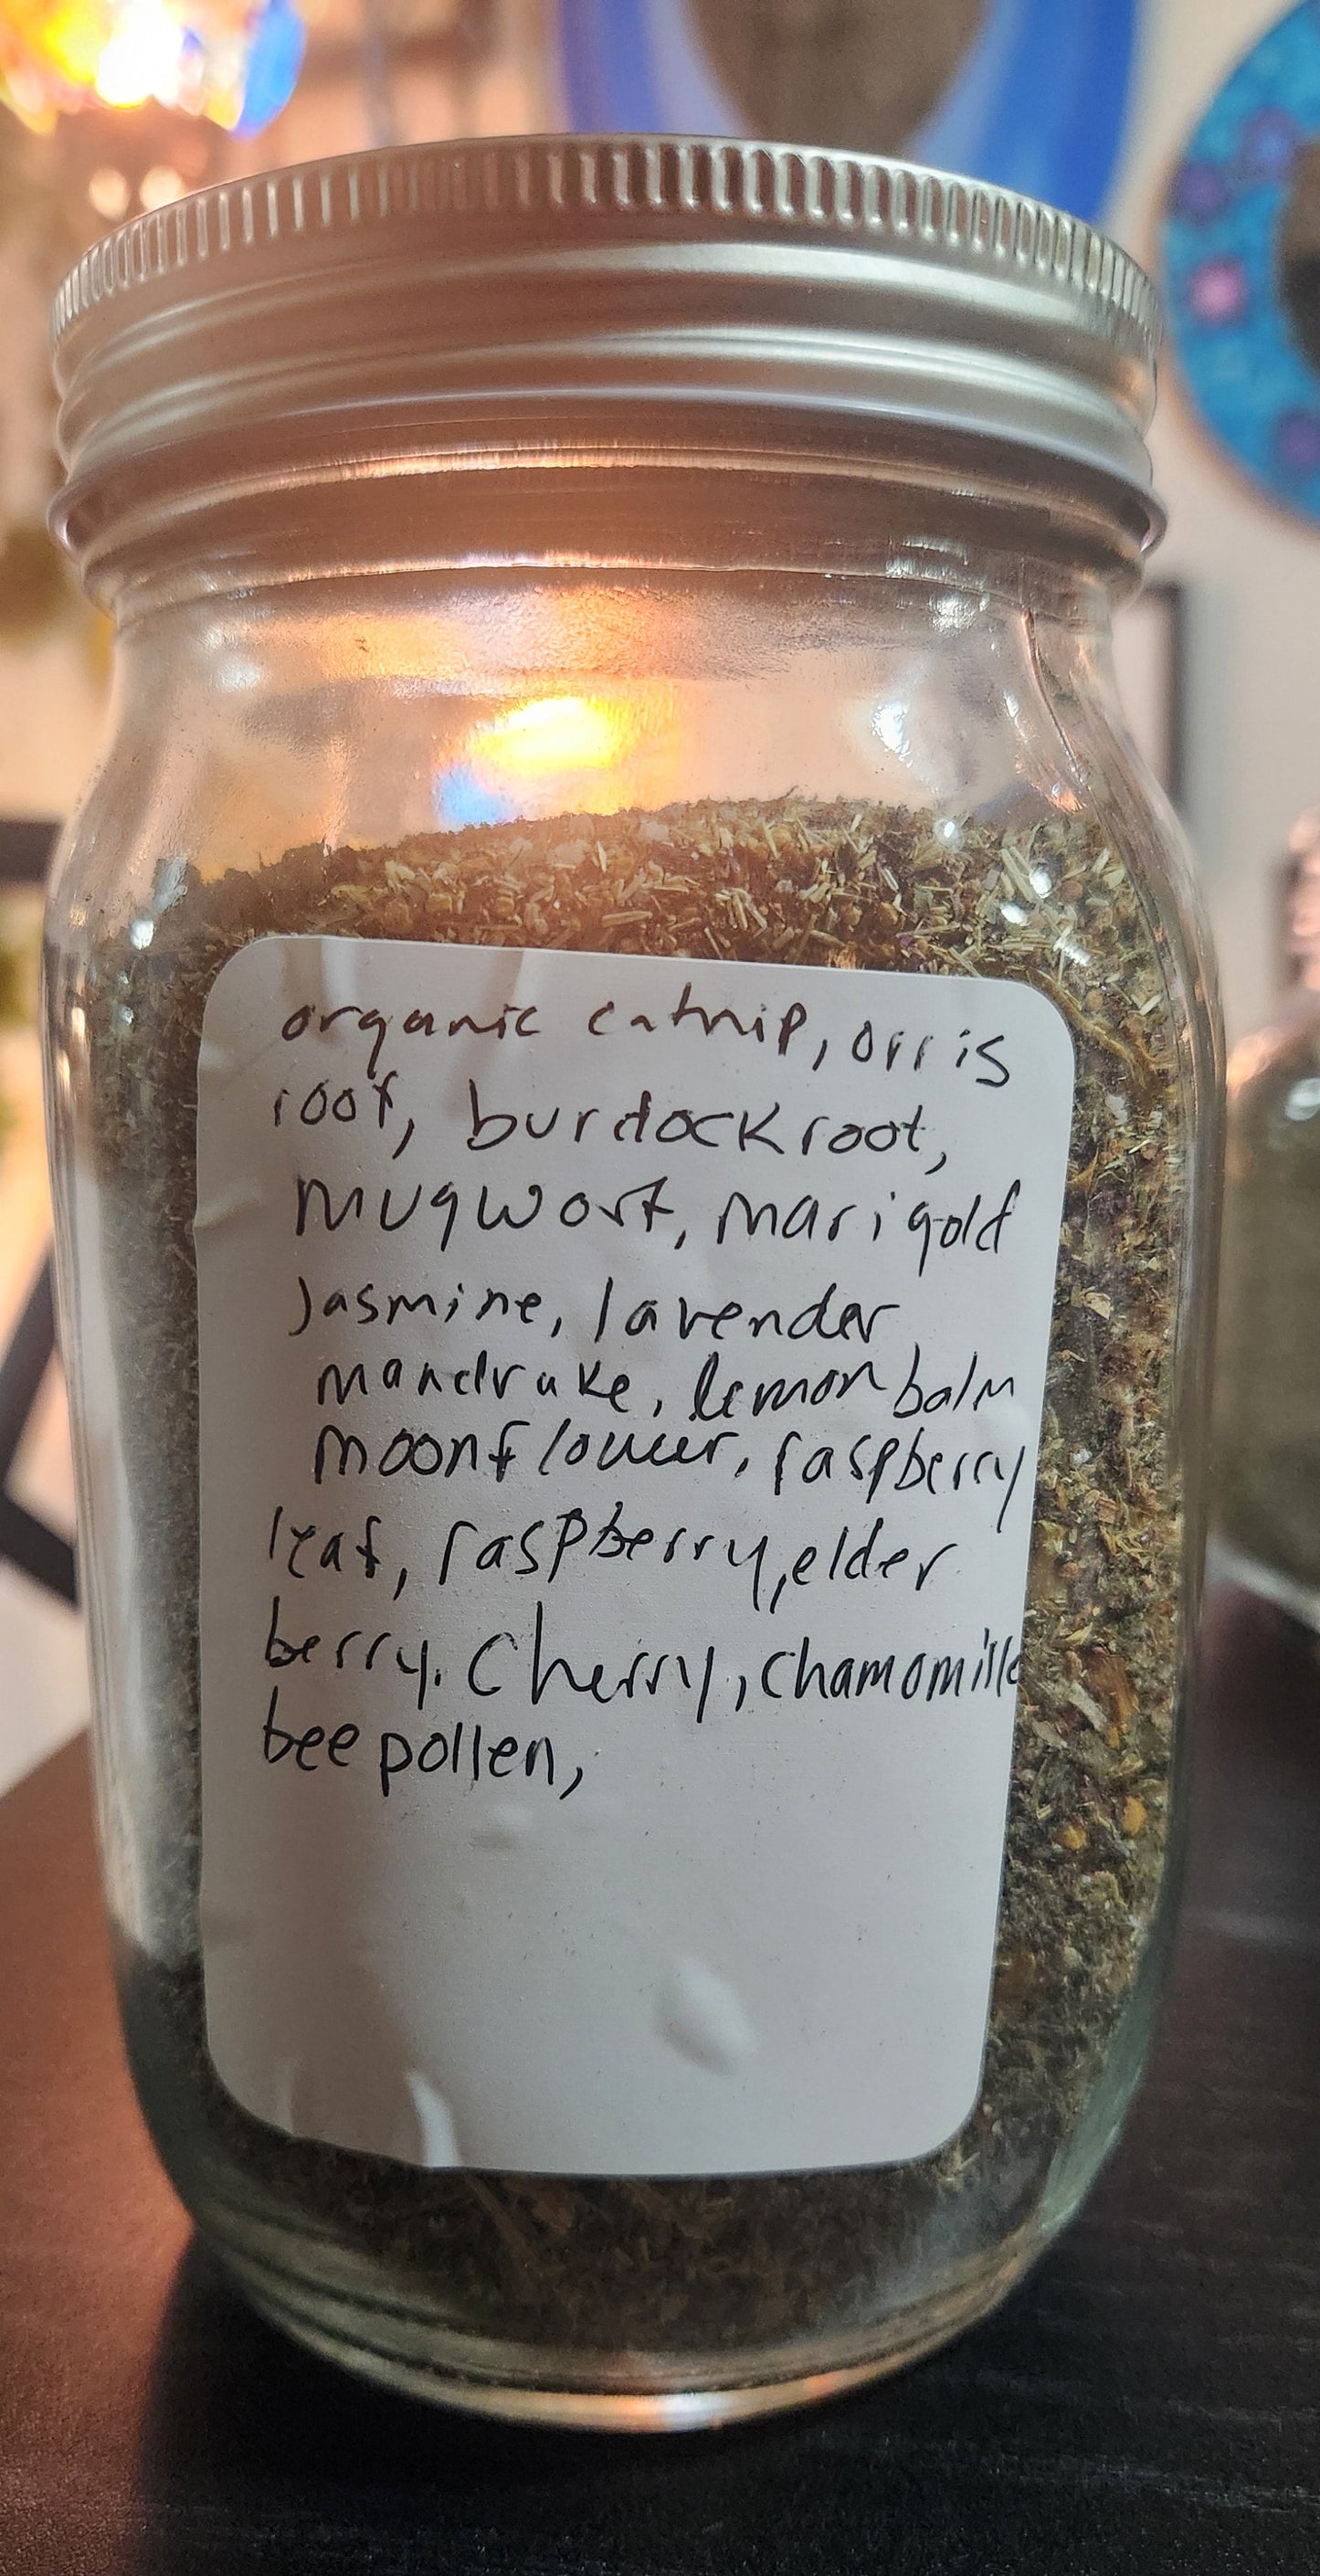 organic catnip, orris
root, burdock root,
mugwort, marigold
Jasmine, lavender
mandrake, lemon balm
moonflower, raspberry
leaf, raspberry, elder
berry. Cherry, chamomille
bee pollen,